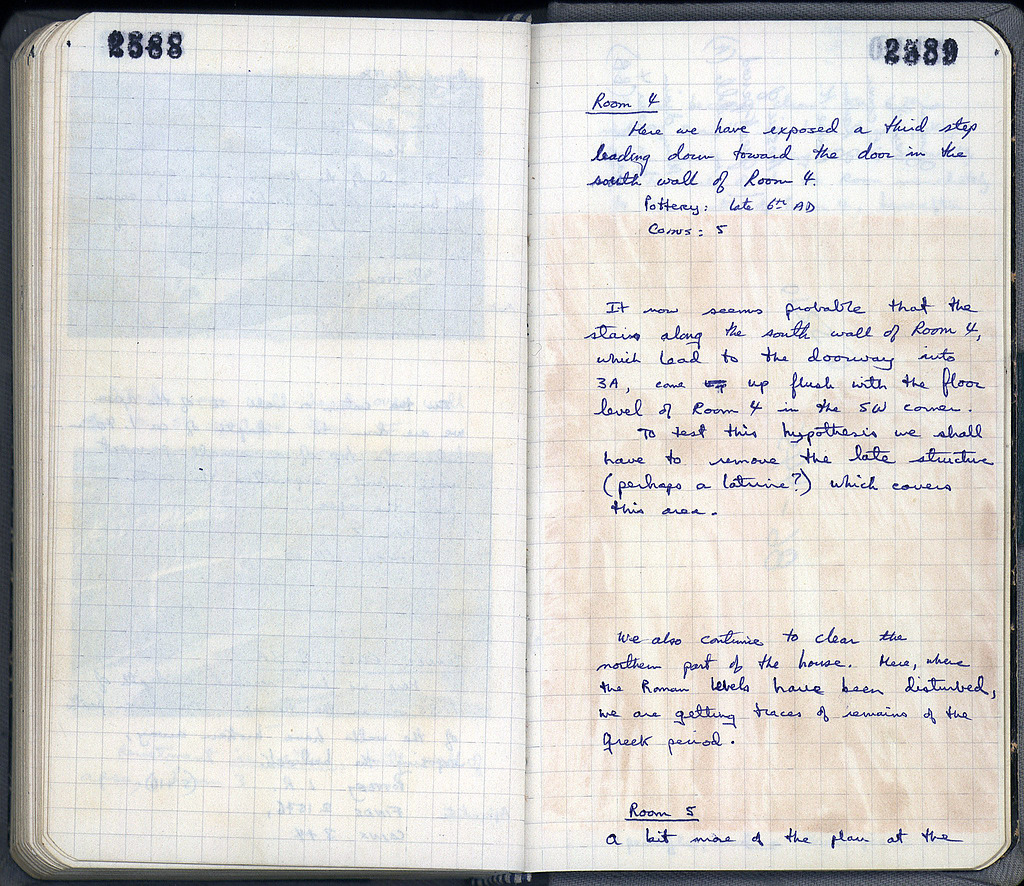 2588
2589
Room 4
Here we have exposed a third step
leading down toward the door in the
south wall of Room 4.
Pottery: late 6th AD
Coins: 5
It now seems probable that the
stairs along the south wall of Room 4,
which lead to the doorway into
3A, come up flush with the floor
level of Room 4 in the SW corner.
To test this hypothesis we shall
have to remove the late structure
(perhaps a latrine?) which covers
this area.
We also continue to clear the
northern part of the house. Here, where
the Roman levels have been disturbed,
we are getting traces of remains of the
Greek period.
Room 5
A bit more of the plan at the